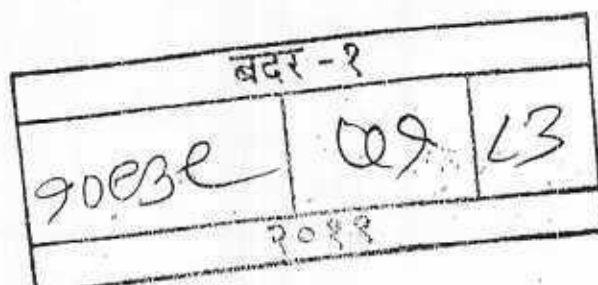 बदर - १
१०९३९ ७१ ८३
२०११